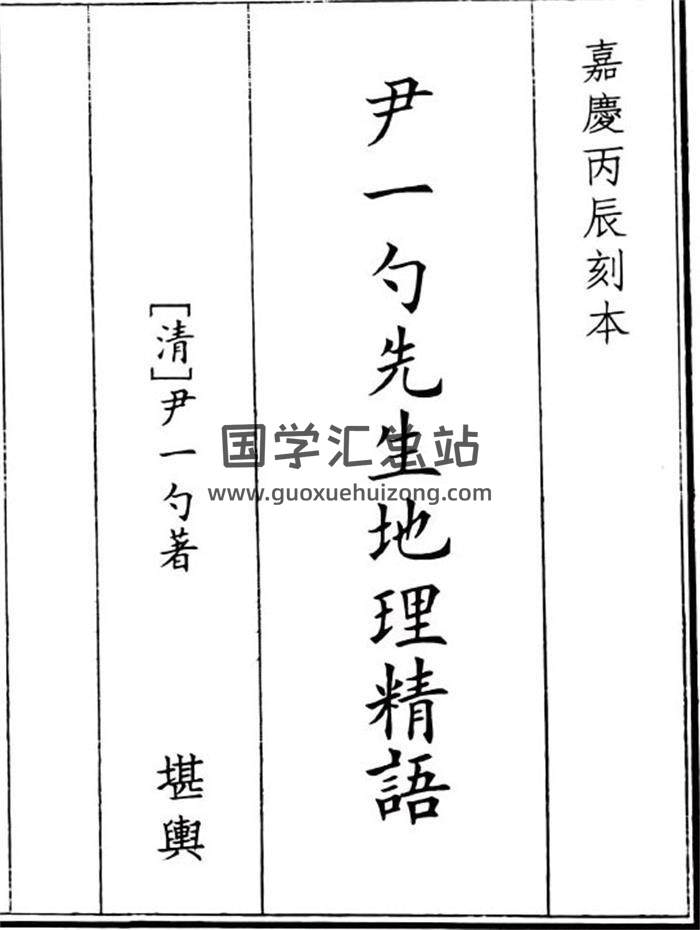 嘉慶丙辰刻本
尹一勺先生地理精語
[清]尹一勺著
堪輿
国学汇总站
www.guoxuehuizong.com